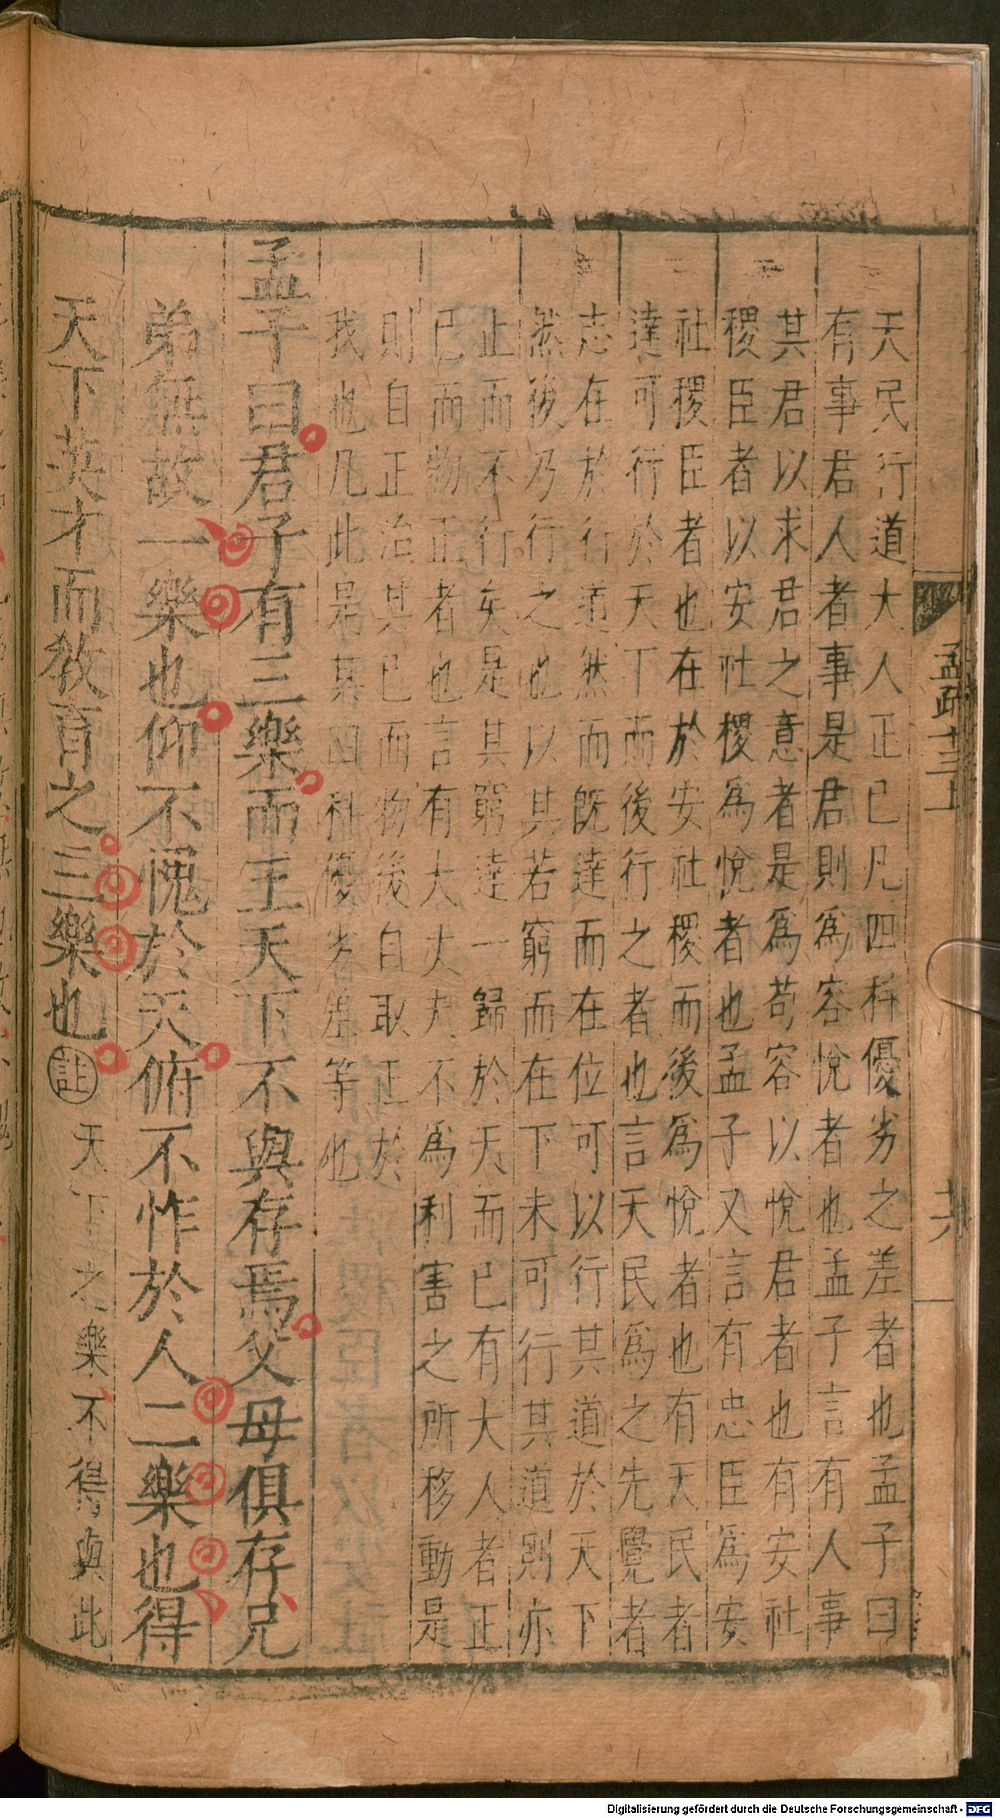 孟疏十三上
六
天民行道大人正已凡四科優劣之差者也孟子曰
有事君人者事是君則爲容悅者也孟子言有人事
其君以求君之意者是爲苟容以悅君者也有安社
稷臣者以安社稷爲悅者也孟子又言有忠臣爲安
社稷臣者也在於安社稷而後爲悅者也有天民者
達可行於天下而後行之者也言天民爲之先覺者
志在於行道然而既達而在位可以行其道於天下
然後乃行之也以其若窮而在下未可行其道則亦
止而不行矣是其窮達一歸於天而已有大人者正
已而物正者也言有大丈夫不爲利害之所移動是
則自正治其已而物後自取正於
我也凡此是其四科優劣差等也
孟子曰君子有三樂而王天下不與存焉父母俱存兄
弟無故一樂也仰不愧於天俯不怍於人二樂也得
天下英才而教育之三樂也註天下之樂不得與此
Digitalisierung gefördert durch die Deutsche Forschungsgemeinschaft - DFG